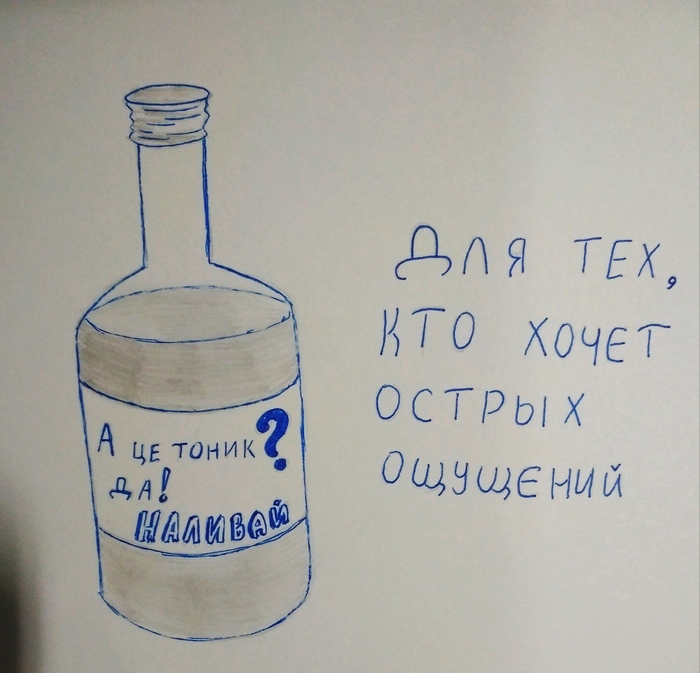 А ЦЕ ТОНИК?
ДА!
НАЛИВАЙ
ДЛЯ ТЕХ,
КТО ХОЧЕТ
ОСТРЫХ
ОЩУЩЕНИЙ